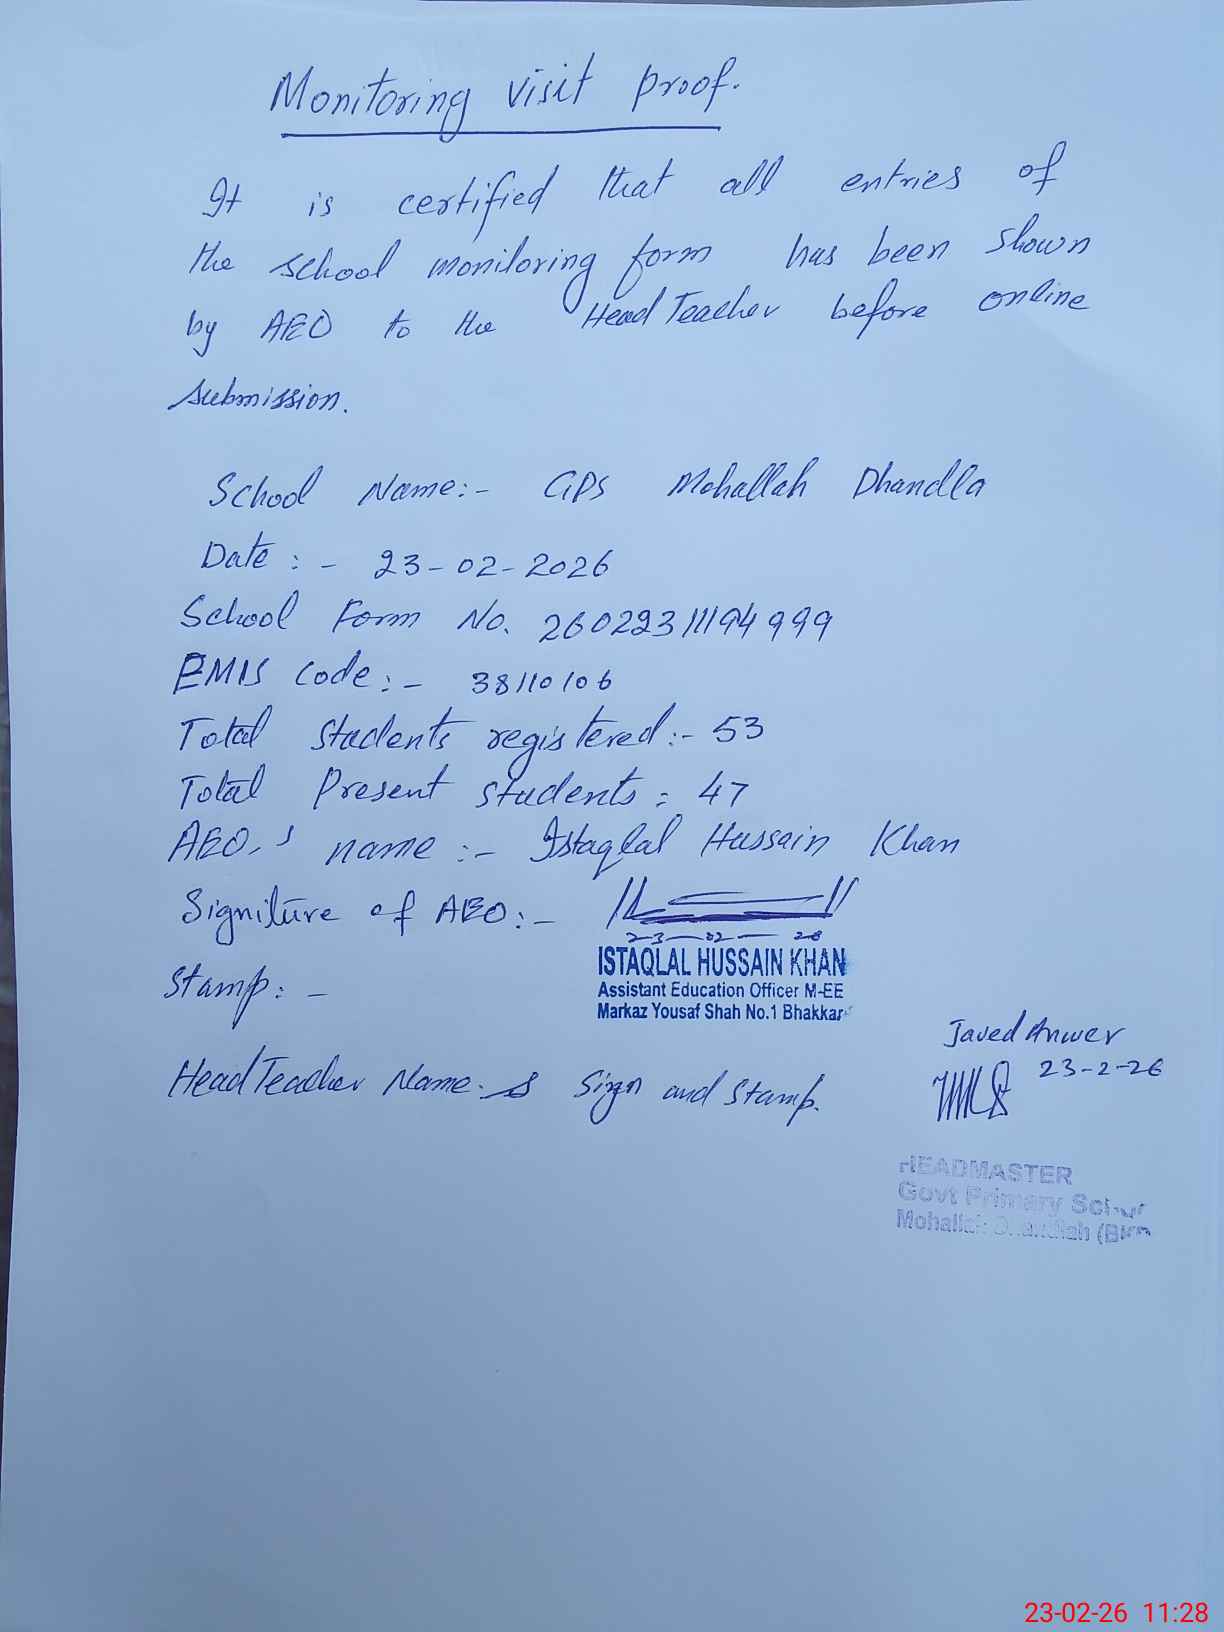 Monitoring visit proof.
It is certified that all entries of
the school monitoring form has been shown
by AEO to the Head Teacher before online
submission.
School Name:- GPS Mohallah Dhandla
Date :- 23-02-2026
School Form No. 26022311194999
EMIS code:- 38110106
Total students registered:- 53
Total Present students = 47
AEO,s name :- Istaqlal Hussain Khan
Signiture of AEO:-
23-02-26
Stamp:-
ISTAQLAL HUSSAIN KHAN
Assistant Education Officer M-EE
Markaz Yousaf Shah No.1 Bhakkar
Javed Anwer
Head Teacher Name & Sign and Stamp.
23-2-26
HEADMASTER
Govt Primary School
Mohallah
23-02-26 11:28